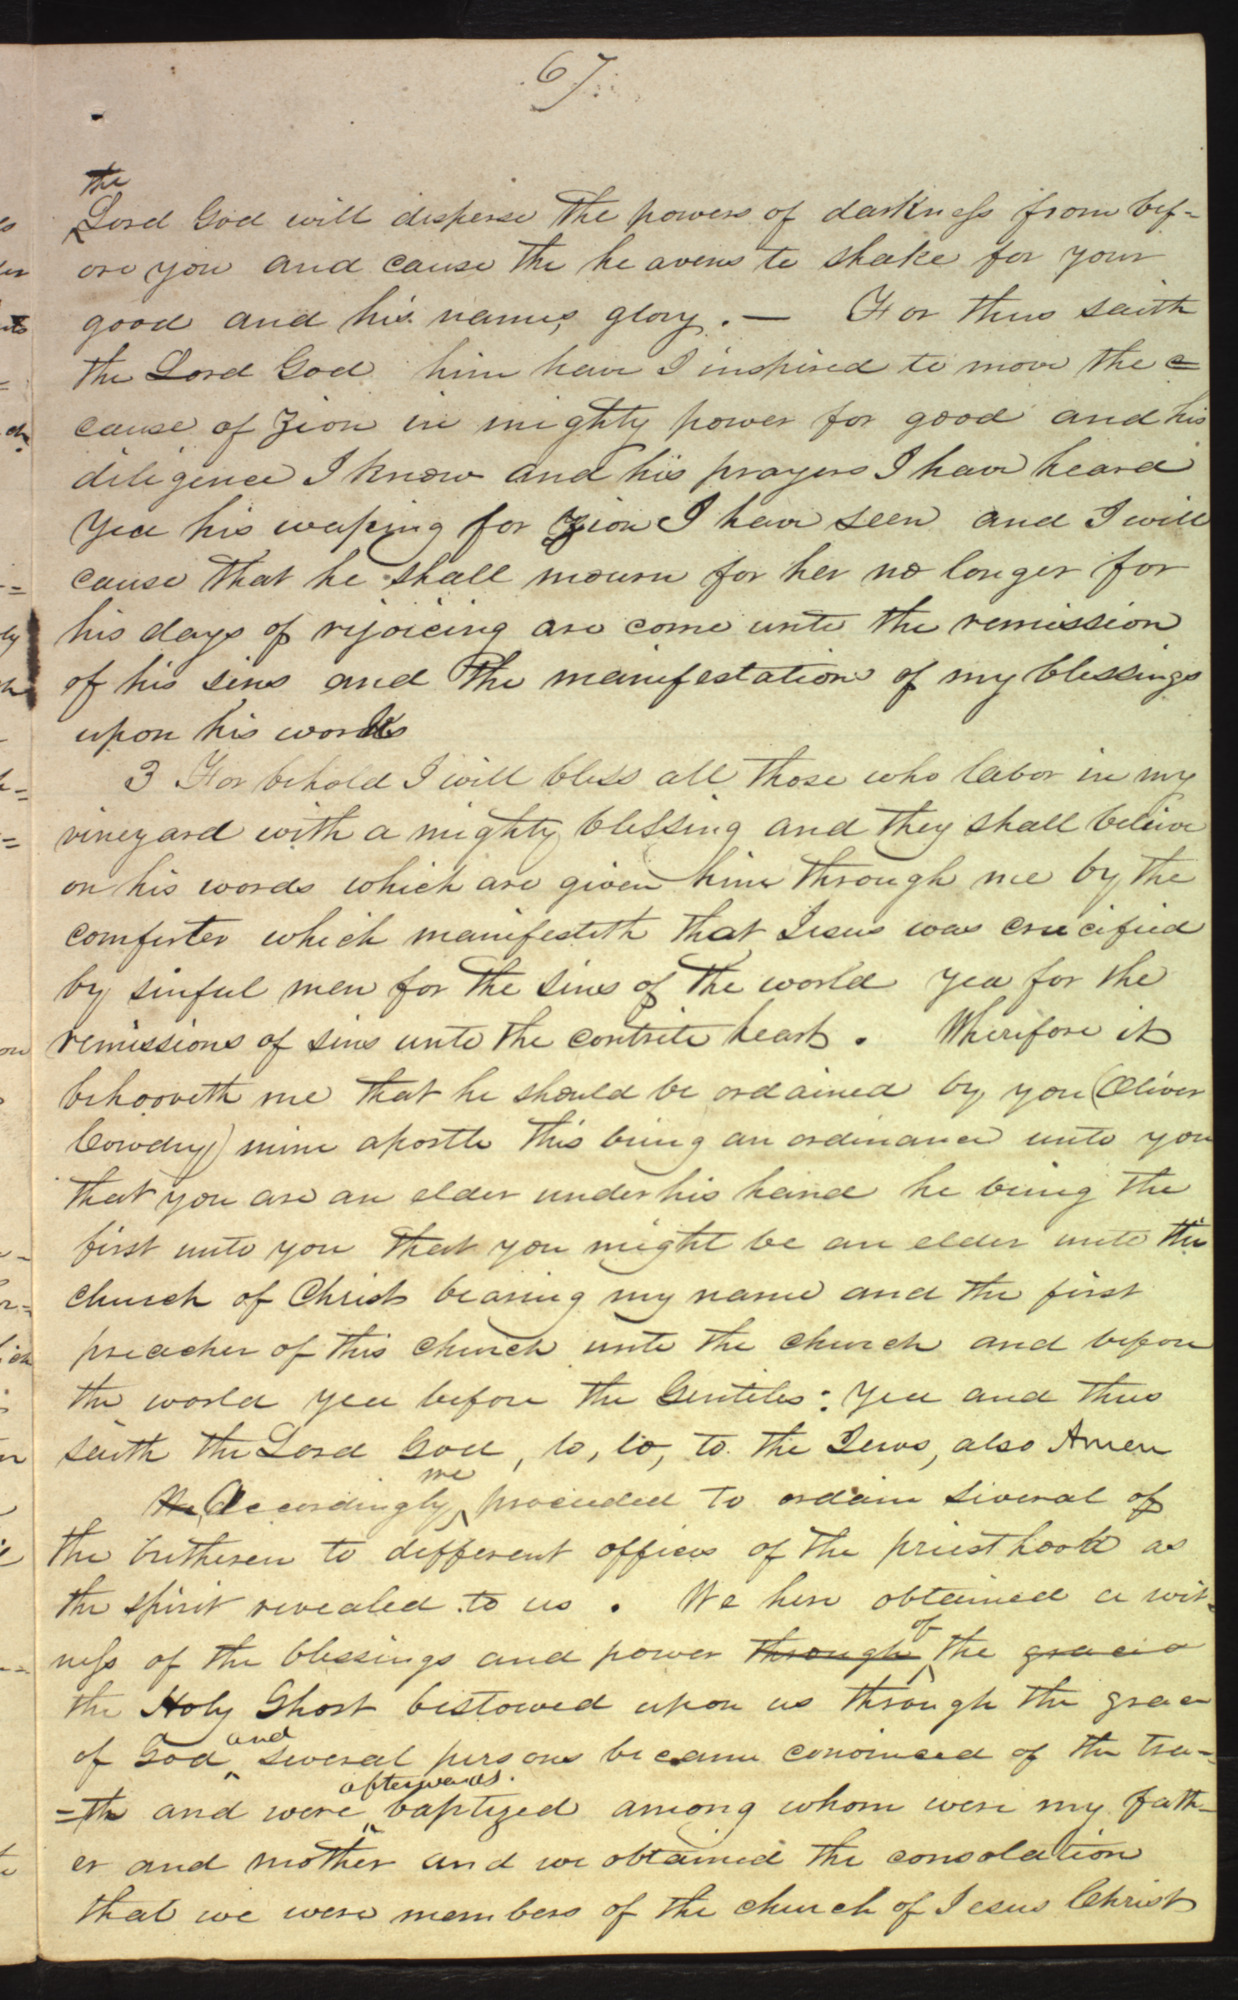 67.
the
Lord God will disperse the powers of darkness from bef-
ore you and cause the heavens to shake for your
good and his names glory. — For thus saith
the Lord God him have I inspired to move the c
cause of Zion in mighty power for good and his
diligence I know and his prayers I have heard
yea his weping for Zion I have seen and I will
cause that he shall mourn for her no longer for
his days of rejoicing are come unto the remission
of his sins and the manifestations of my blessings
upon his works
3 For behold I will bless all those who labor in my
vineyard with a mighty blessing and they shall beleive
on his words which are given him through me by the
comforter which manifesteth that Jesus was crucified
by sinful men for the sins of the world yea for the
remissions of sins unto the contrite heart. Wherefore it
behooveth me that he should be ordained by you (Oliver
Cowdry) mine apostle this being an ordinance unto you
that you are an elder under his hand he being the
first unto you that you might be an elder unto this
church of Christ bearing my name and the first
preacher of this church unto the church and before
the world yea before the Gentiles: Yea and thus
saith the Lord God, lo, lo, to the Jews, also Amen
we
Accordingly proceeded to ordain several of
the bretheren to different offices of the priesthood as
the spirit revealed to us. We here obtained a wit-
of
ness of the blessings and power through the grace o
the Holy Ghost bestowed upon us through the grace
and
of God several persons became convinced of the tru-
afterwards.
=th and were baptized among whom were my fath-
er and mother and we obtained the consolation
that we were members of the church of Jesus Christ